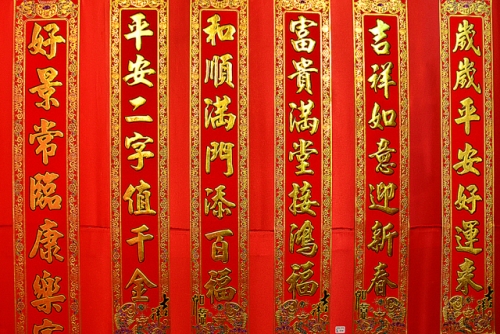 歲歲平安好運來
吉祥如意迎新春
如意
富貴滿堂接鴻福
吉祥
和順滿門添百福
如意
平安二字值千金
吉祥
好景常臨康樂